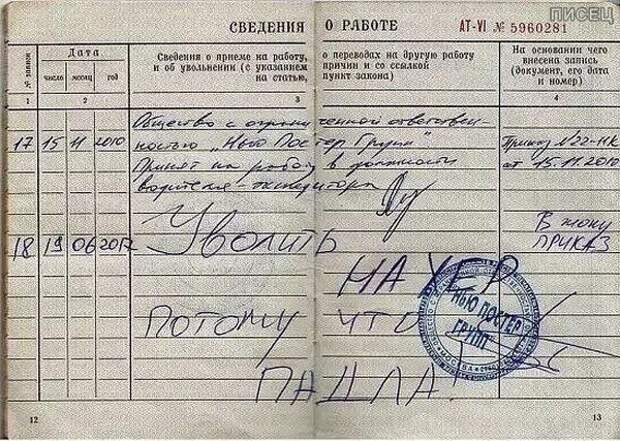 ПИСЕЦ
СВЕДЕНИЯ О РАБОТЕ АТ-VI № 5960281
№ записи
Дата
число месяц год
Сведения о приеме на работу, о переводах на другую работу
и об увольнении (с указанием причин и со ссылкой
на статью, пункт закона)
На основании чего
внесена запись
(документ, его дата
и номер)
1 2 3 4
Общество с ограниченной ответствен-
17 15 11 2010 ностью „Нью Постер Групп" Приказ №22-НК
Принят на работу в должности от 15.11.2010
водителя-экспедитора
18 19 06 2012 Уволить В жопу
ПРИКАЗ
НАХЕР
ПОТОМУ ЧТО
ПАДЛА!
НЬЮ ПОСТЕР
ГРУПП
МОСКВА
12 13